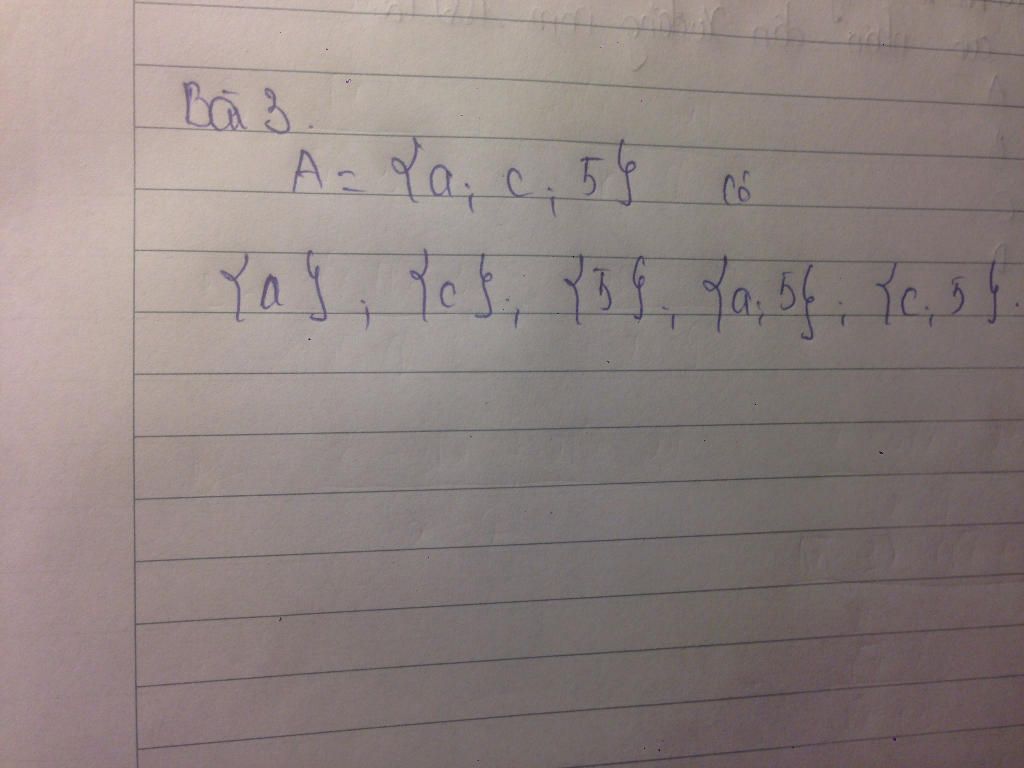 Bài 3.
A = {a; c; 5} có
{a}; {c}; {5}; {a; 5}; {c; 5}.